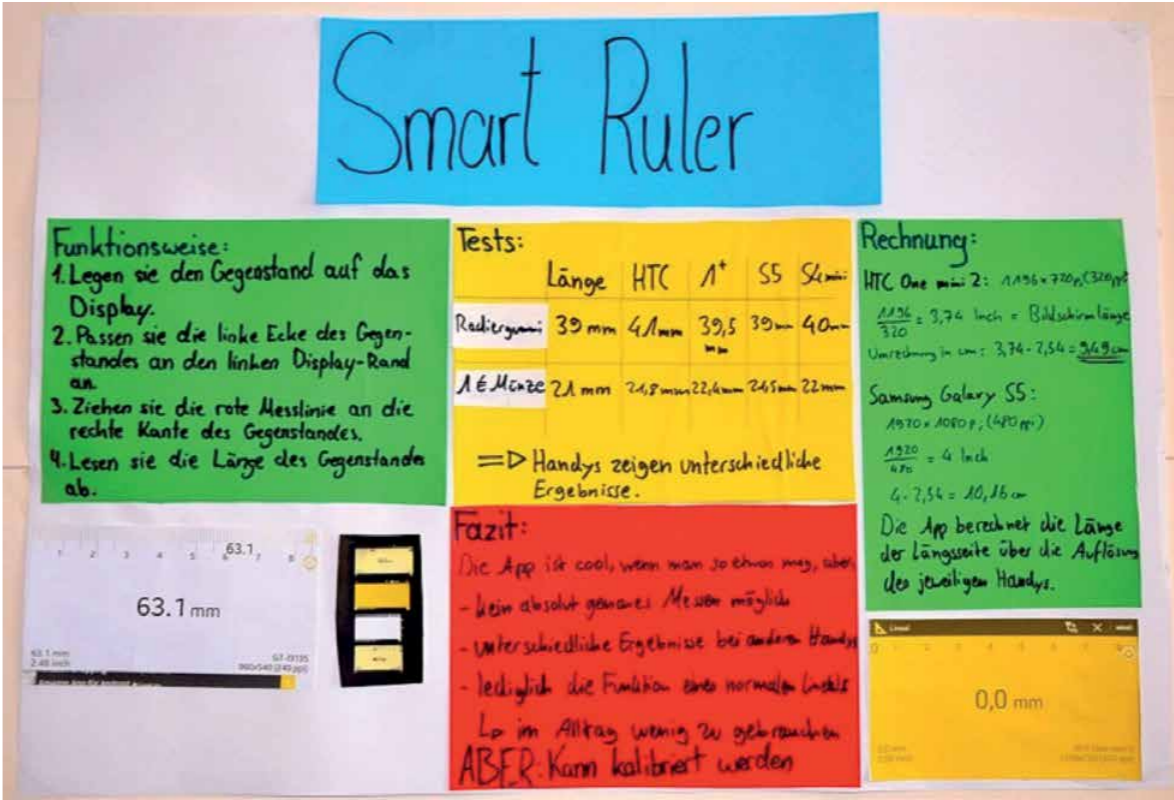 Smart Ruler
Funktionsweise:
1. Legen sie den Gegenstand auf das
Display.
2. Passen sie die linke Ecke des Gegen-
standes an den linken Display-Rand
an.
3. Ziehen sie die rote Messlinie an die
rechte Kante des Gegenstandes.
4. Lesen sie die Länge des Gegenstandes
ab.
Tests:
Länge HTC 1+ S5 S4 mini
Radiergummi 39 mm 41mm 39,5 mm 39mm 40mm
1 € Münze 21 mm 21,8mm 22,4mm 21,5mm 22mm
=> Handys zeigen unterschiedliche
Ergebnisse.
Fazit:
Die App ist cool, wenn man so etwas mag, aber:
- kein absolut genaues Messen möglich
- unterschiedliche Ergebnisse bei anderen Handys
- lediglich die Funktion eines normalen Lineals
↳ im Alltag wenig zu gebrauchen
ABER: Kann kalibriert werden
Rechnung:
HTC One mini 2: 1196 x 720p, (320ppi)
1196/320 = 3,74 Inch = Bildschirmlänge
Umrechnung in cm: 3,74 · 2,54 = 9,49 cm
Samsung Galaxy S5:
1920 x 1080p, (480ppi)
1920/480 = 4 Inch
4 · 2,54 = 10,16 cm
Die App berechnet die Länge
der Längsseite über die Auflösung
des jeweiligen Handys.
1 2 3 4 5 63.1 7 8
63.1 mm
63.1 mm
2.48 inch
GT-I9195
960x540 (240 ppi)
Lineal
0,0 mm